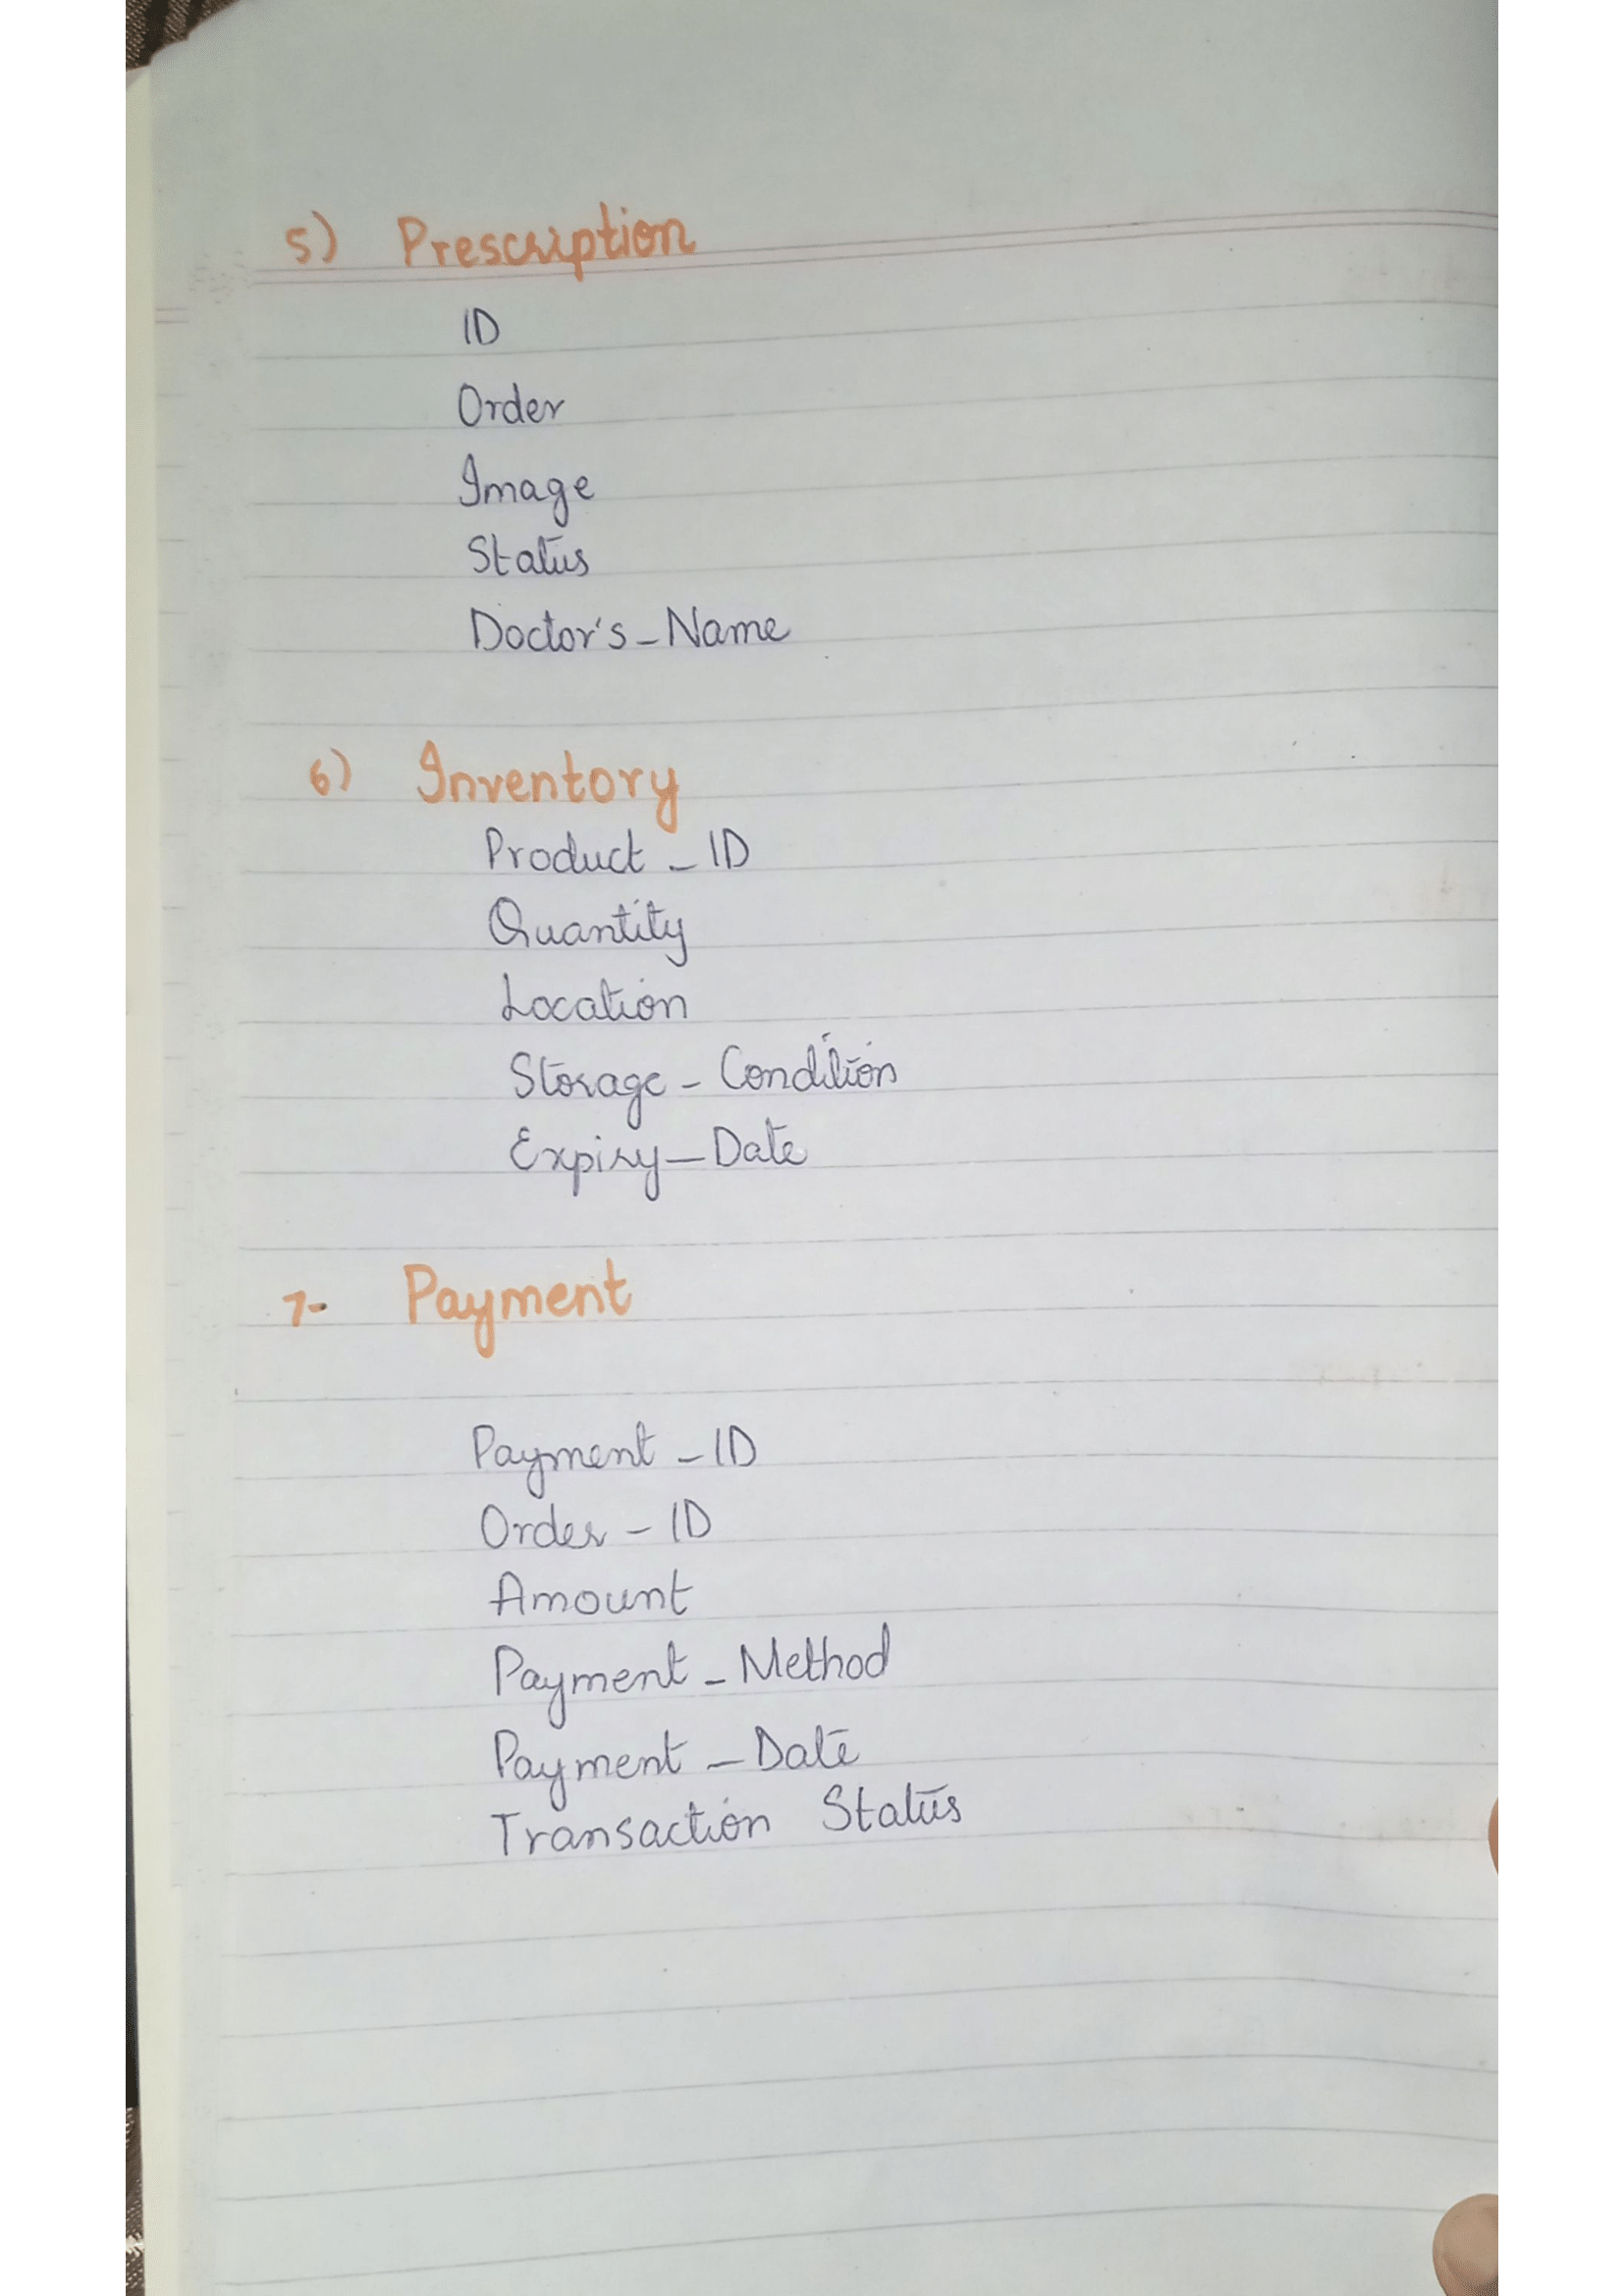 5) Prescription
ID
Order
Image
Status
Doctor's_Name
6) Inventory
Product_ID
Quantity
Location
Storage_Condition
Expiry_Date
7- Payment
Payment_ID
Order_ID
Amount
Payment_Method
Payment_Date
Transaction Status